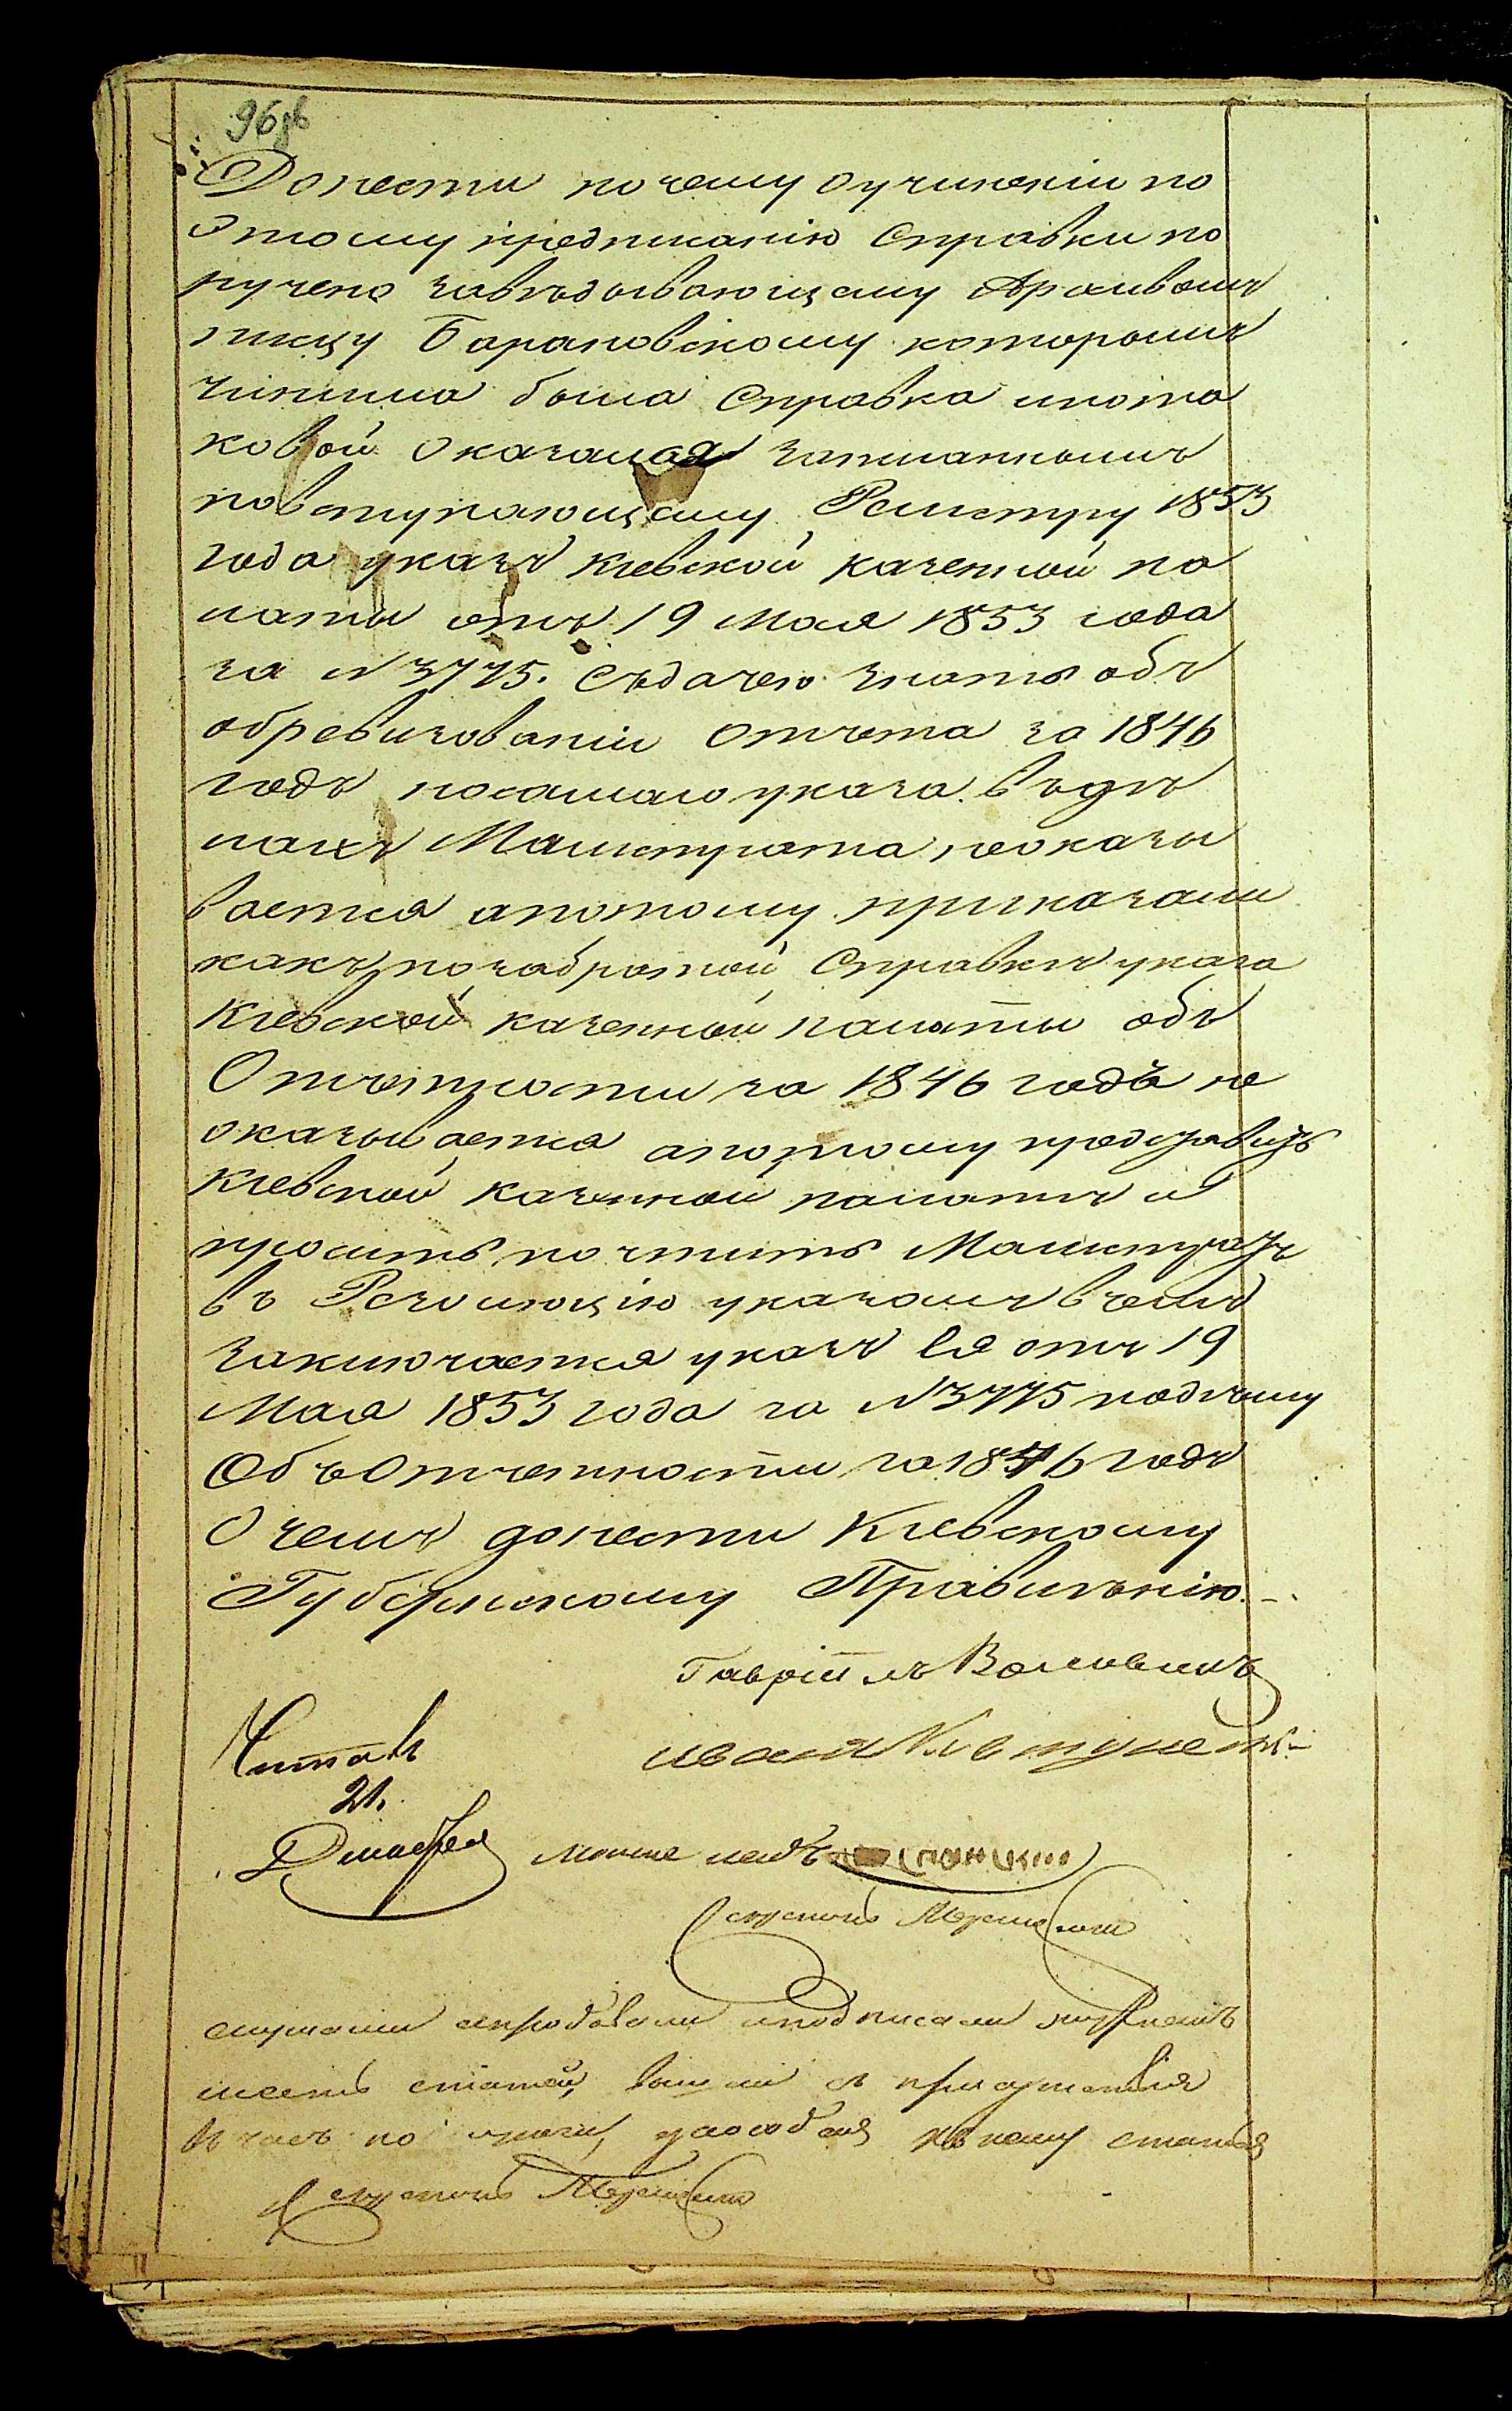 96 зв
Донести почему о учиненіи по
Этому предписанію Справки по
ручено завѣдывающему Архивомъ
писцу Барановскому которымъ
чинина была Справка ипота
ковой оказалася записаннымъ
повступающему Реистру 1853
года указъ Кіевской казенной па
латы отъ 19 Мая 1853 года
за N 3775. Съдачею знать объ
обревизованіи Отчета за 1846
годъ посамаго указа въдѣ
лахъ Маистрата неоказы
вается апотому приказали
какъ позабратой Справкѣ указа
Кіевской казенной палаты объ
Отчетности за 1846 годъ не
оказывается апотому представить
Кіевской казенной палатѣ и
просить почтить Маистратъ
въ Резолюцію указомъ вчемъ
заключается указъ Ея отъ 19
Мая 1853 года за N 3775 подчему
Объ Отчетности за 1846 годъ
О чемъ донести Кіевскому
Губернскому Правленію.
Гавріилъ
Читалъ иванъ
21.
слушали иподписали
шесть статей, вышли съ присутствія
въ часъ по